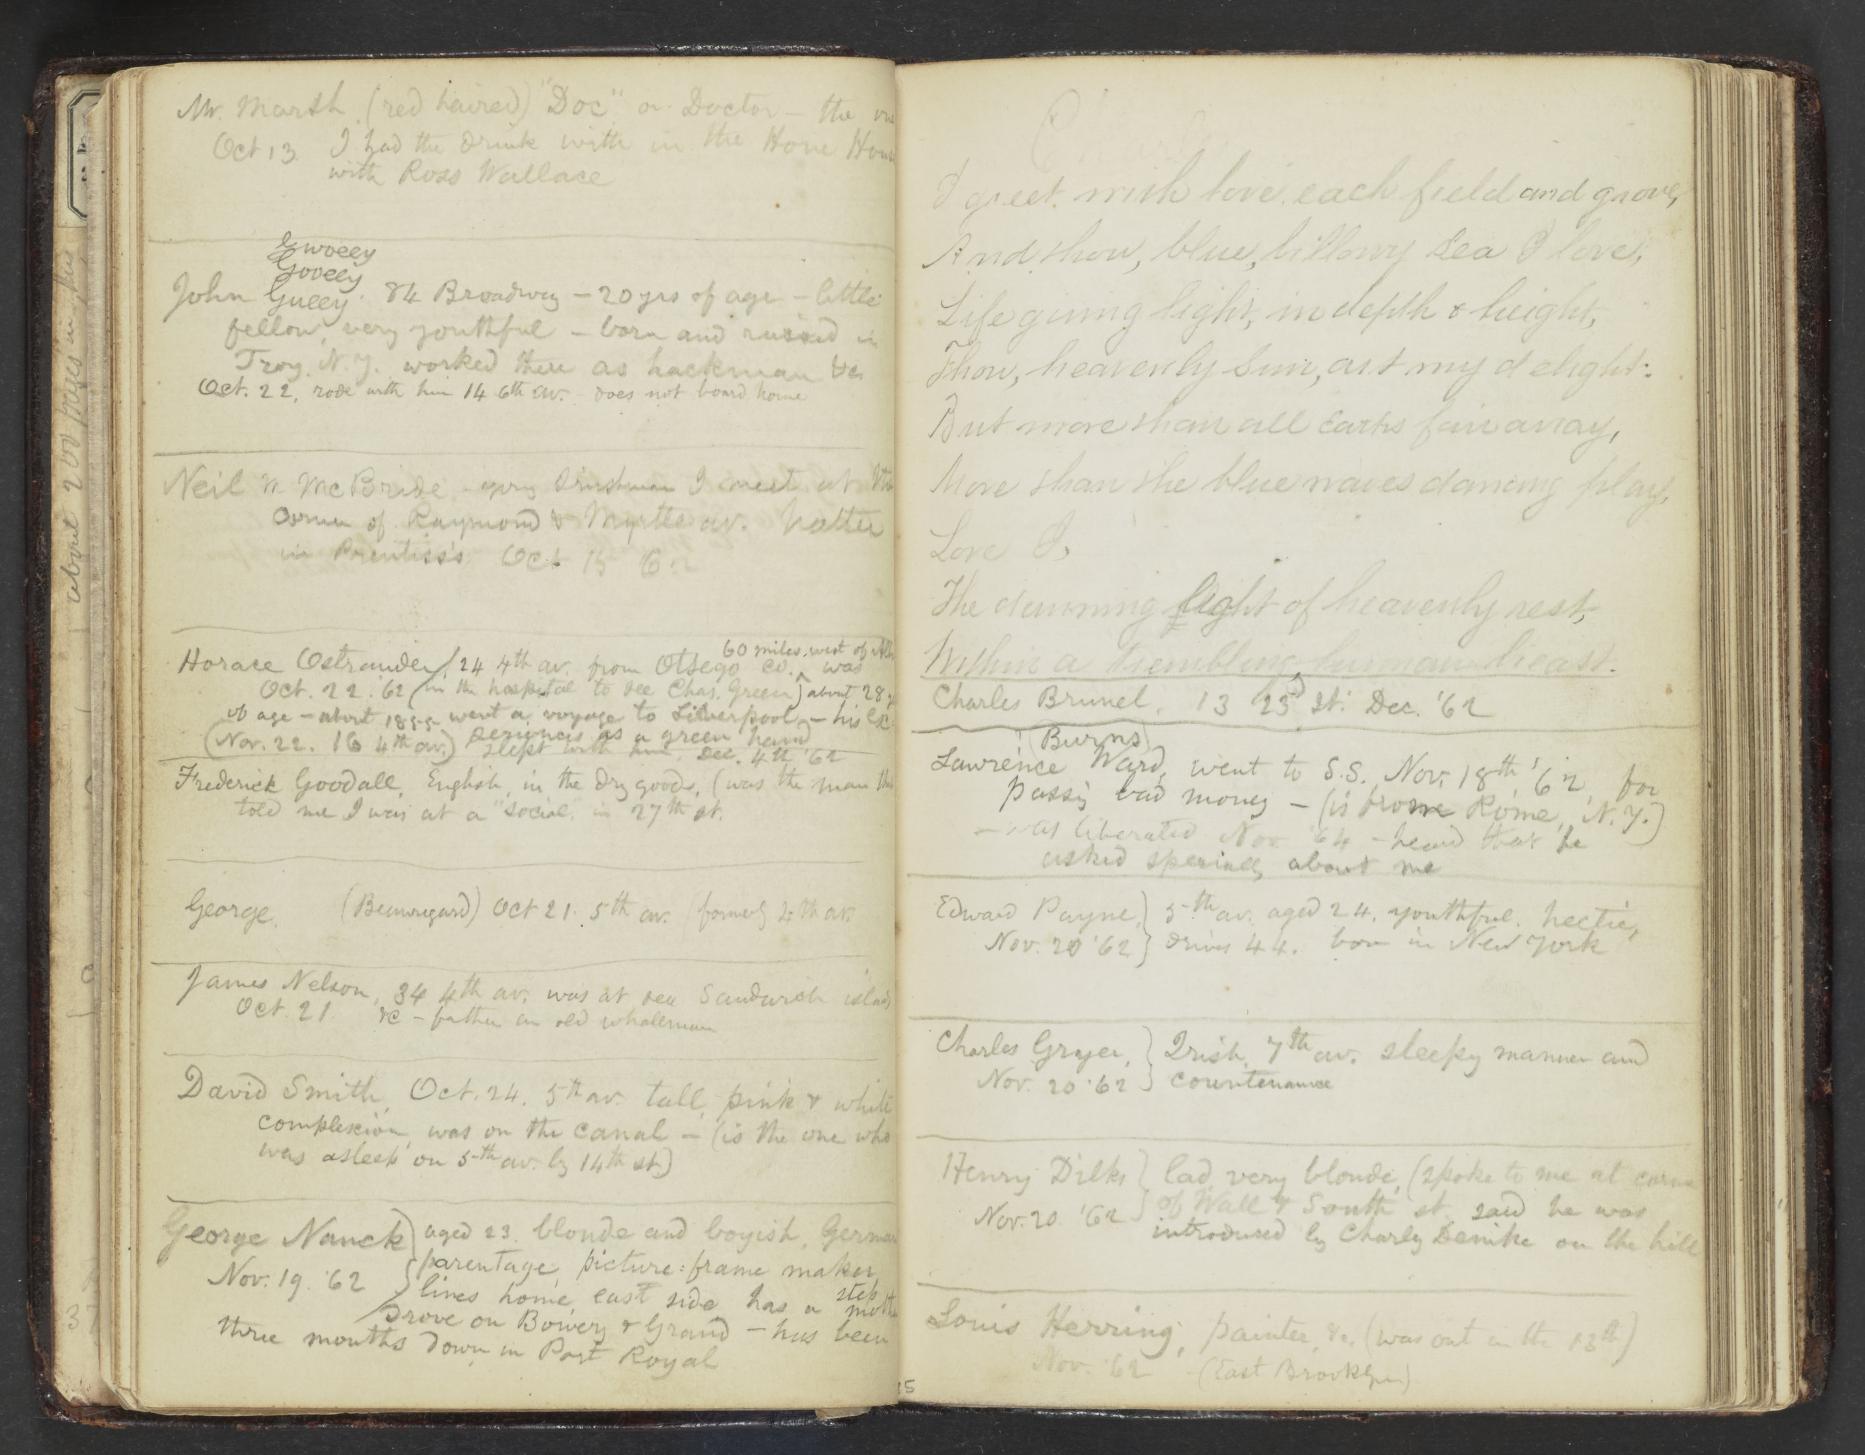 Mr. Marsh, (red haired) "Doc" or Doctor — the
Oct 13 I had the drink with in the Hone
with Ross Wallace
Gwoeey
Gooeey
John Gueey 84 Broadway — 20 yrs of age — little
fellow, very youthful — born and raised in
Troy, N.Y. worked there as hackman &c
Oct. 22, rode with him 14 6th av. does not board home
Neil McBride Irishman I meet at the
corner of Raymond & Myrtle av. hatter
in Prentiss's Oct 15 '62
60 miles west of
Horace Ostrander, 24 4th av. from Otsego co. ^ was
Oct. 22 '62 in the hospital to see Chas. Green) about 28
of age — about 1855 went a voyage to Liverpool — his
experiences as a green hand
(Nov. 22. 16 4th av.) slept with him Dec. 4th '62
Frederick Goodall, English, in the dry goods, (was the man
told me I was at a "social" in 27th st.
George (Beauregard) Oct 21. 5th av. (formerly 4th av.
James Nelson, 34 4th av. was at sea Sandwich
Oct. 21 &c — father an old whaleman
David Smith, Oct. 24. 5th av. tall, pink & white
complexion, was on the canal — (is the one who
was asleep on 5th av. by 14th st)
George Nanck) aged 23. blonde and boyish,
Nov. 19. '62 parentage, picture-frame maker
lives home, east side has a step
drove on Bowery & Grand — has been
three months down in Port Royal
I greet with love, each field and grove,
And thou, blue, billowy Sea I love;
Life giving light, in depth & height,
Thou, heavenly Sun, art my delight:
But more than all earths fair array,
More than the blue waves dancing play,
Love I,
The dawning light of heavenly rest,
Within a trembling human breast.
Charles Brunel, 13 23d St. Dec. '62
(Burns)
Lawrence Ward, went to S.S. Nov. 18th '62, for
passing bad money — (is from Rome, N.Y.)
— was liberated Nov '64 — heard that he
asked specially about me
Edward Payne,) 5th av. aged 24, youthful, hectic,
Nov. 20 '62 } drives 44. born in New York
Charles Gryer, } Irish, 7th av. sleepy manner and
Nov. 20 '62 } countenance
Henry Dilks } lad, very blonde, (spoke to me at
Nov. 20 '62 } of Wall & South st. said he was
introdused by Charly Denike on the hill
Louis Herring, painter, &c. (was out in the 13th)
Nov. '62 (East Brooklyn)